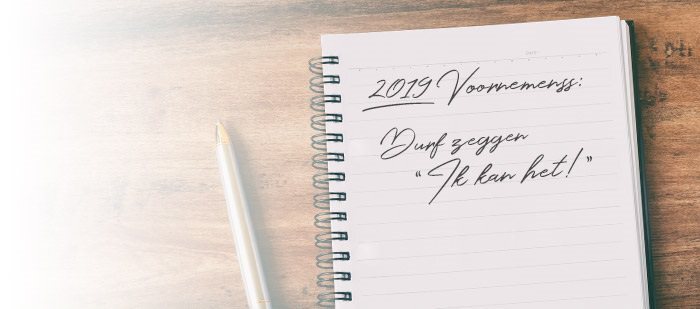 Date:
2019 Voornemenss:
Durf zeggen
“Ik kan het!”